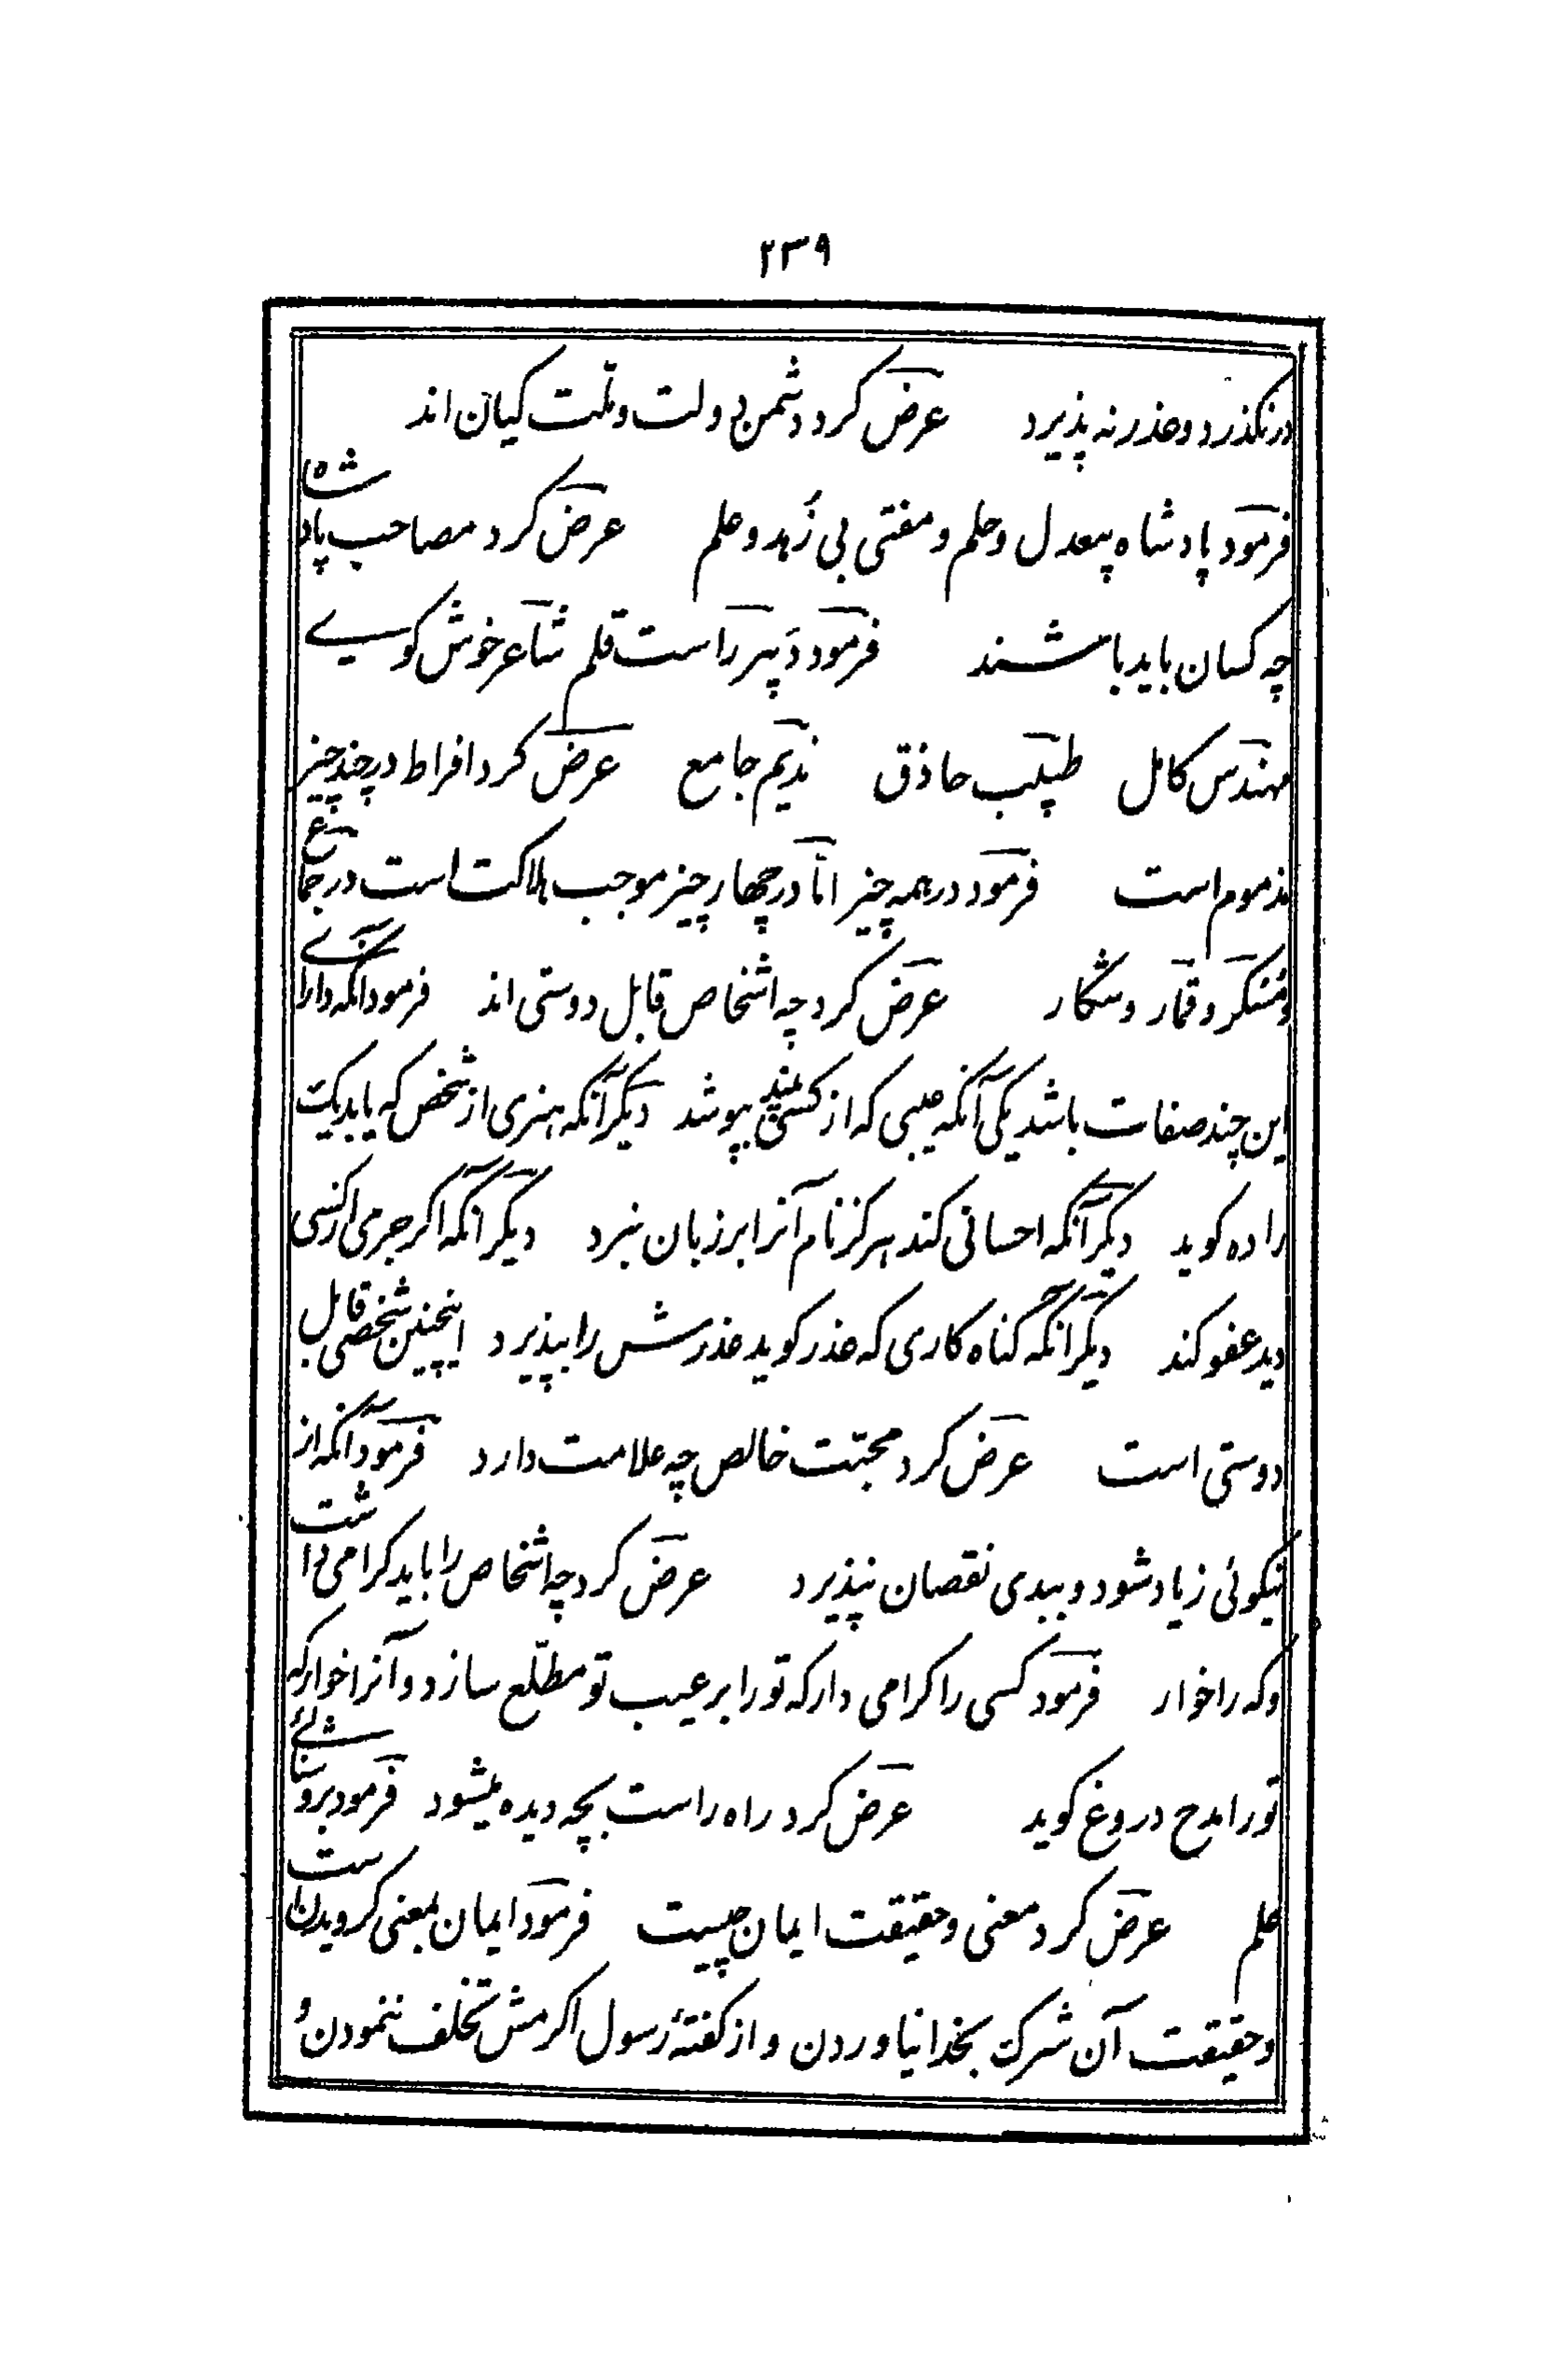 ۲۳۹
درنگذرد و عذر نه پذیرد عرض کرد دشمن دولت و ملت کیان اند
فرمود پادشاه بیعدل و حلم و مفتی بی زُهد و علم عرض کرد مصاحب پادشاه
چه کسان باید باشند فرمود دبیر راست قلم شاعر خوش کوے
مهندس کامل طبیب حاذق ندیم جامع عرض کرد افراط در چند چیز
مذموم است فرمود در همه چیز امّا در چهار چیز موجب هلاکت است در جماع
و مُسکر و قمار و شکار عرض کرد چه اشخاص قابل دوستی اند فرمود آنکه دارای
این چند صفات باشد یکی آنکه عیبی که از کسی بیند بپوشد دیگر آنکه هنری از شخص که یابد یکت
را ده کوید دیگر آنکه احسانی کند هرکز نام آنرا بر زبان نبرد دیگر آنکه اکر جرمی از کسی
دید عفو کند دیگر آنکه کناه کاری که عذر کوید عذرش را بپذیرد اینچنین شخصی قابل
دوستی است عرض کرد محبّت خالص چه علامت دارد فرمود آنکه از
نیکوئی زیاد شود و ببدی نقصان نپذیرد عرض کرد چه اشخاص را باید کرامی داشت
و که را خوار فرمود کسی را کرامی دار که تو را بر عیب تو مطّلع سازد و آنرا خوار که
تو را مدح دروغ کوید عرض کرد راه راست بچه دیده میشود فرمود بروشنائے
علم عرض کرد معنی و حقیقت ایمان چیست فرمود ایمان بمعنی کرویدن است
و حقیقت آن شرک بخدا نیاوردن و از کفتهٔ رسول اکرمش تخلف ننمودن و